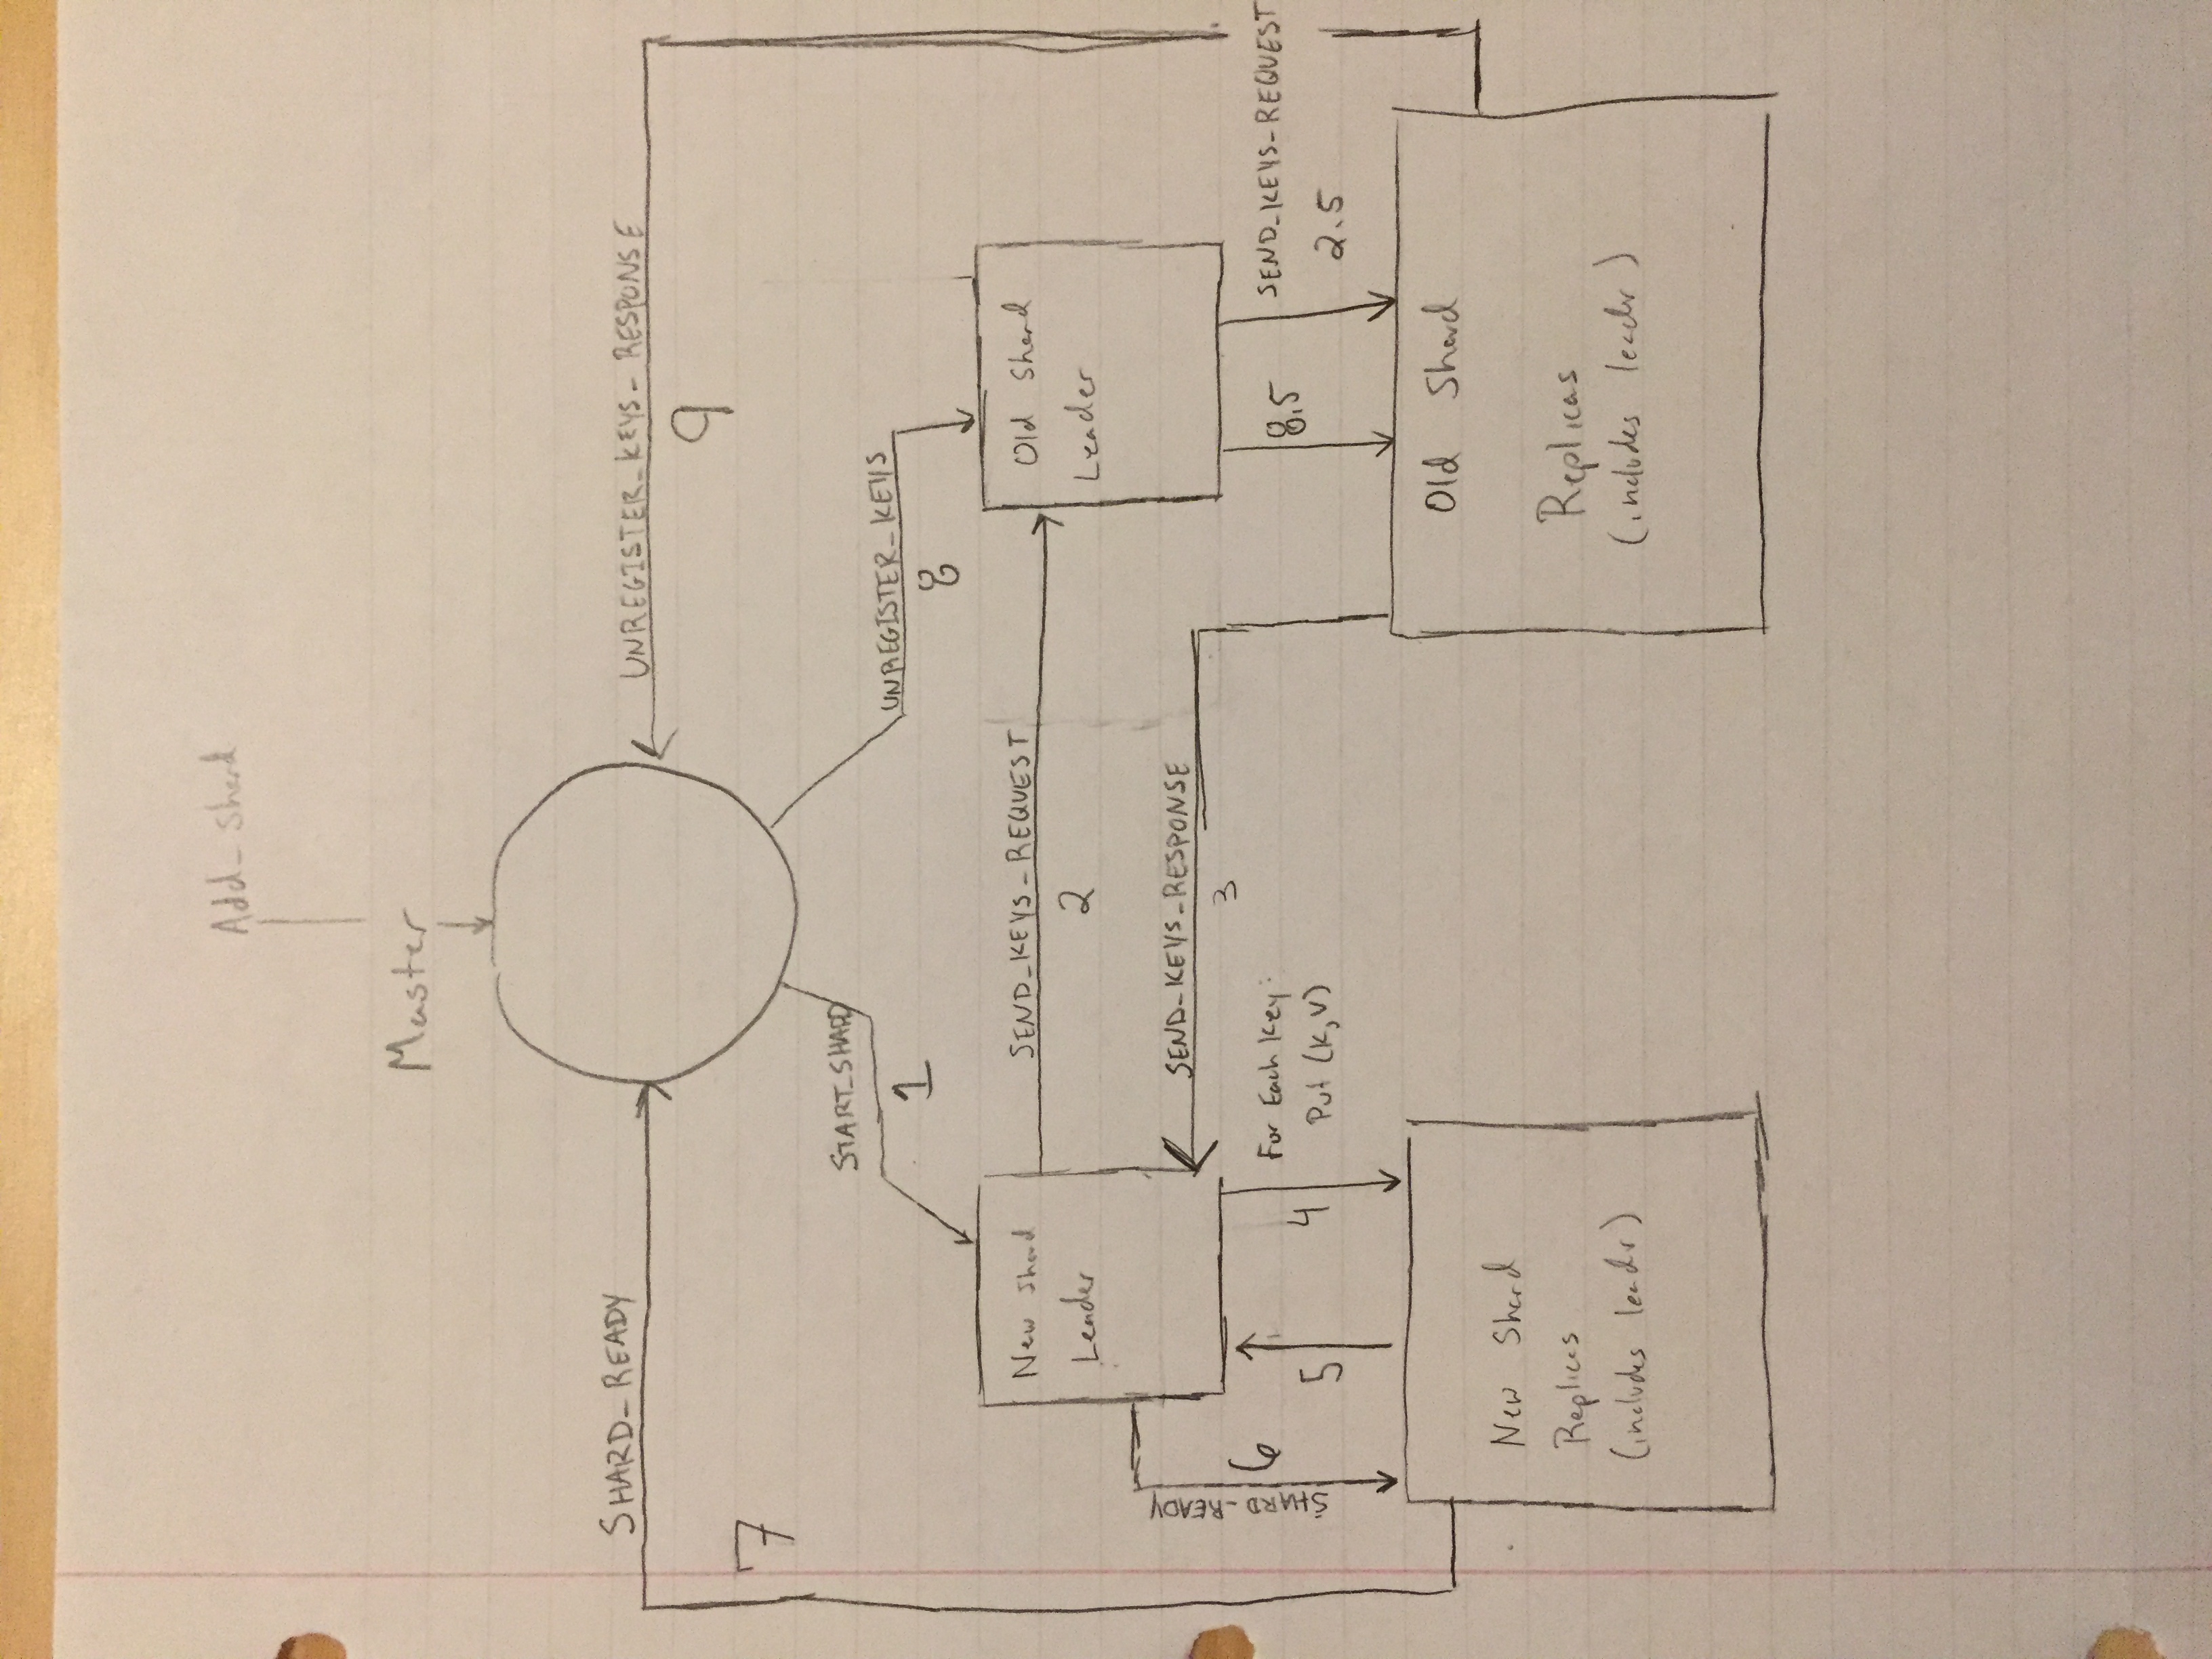 Add_Shard
Master
SHARD_READY
UNREGISTER_KEYS_RESPONSE
9
7
START_SHARD
1
UNREGISTER_KEYS
8
New Shard
Leader
SEND_KEYS_REQUEST
2
Old Shard
Leader
SEND_KEYS_RESPONSE
3
SHARD_READY
6
5
4
For Each Key:
Put (K,V)
8.5
SEND_KEYS_REQUEST
2.5
New Shard
Replicas
(includes leader)
Old Shard
Replicas
(includes leader)